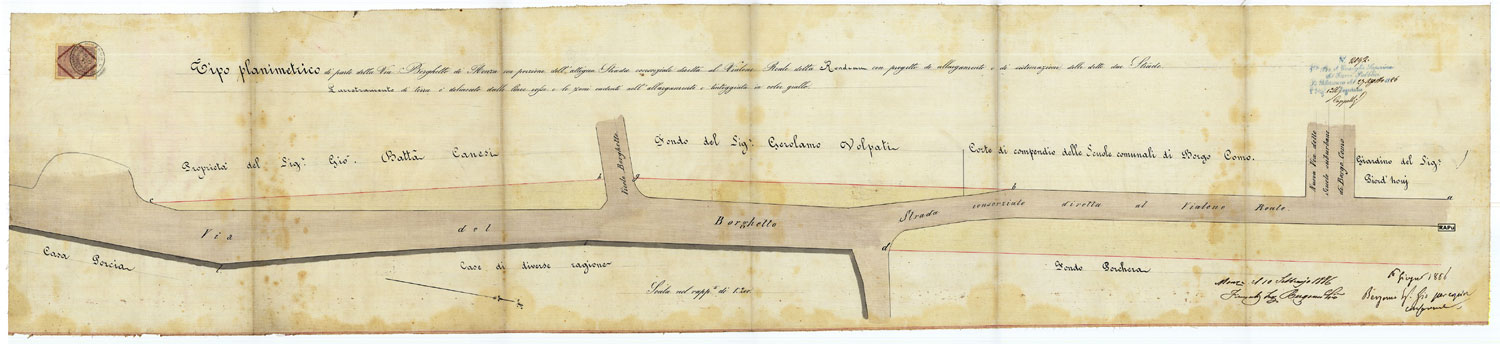 Tipo planimetrico di parte della Via Borghetto di Monza con porzione dell'attigua Strada consorziale diretta al Vialone Reale della Rondinara con progetto di allargamento e di sistemazione delle dette due Strade.
L'arretramento di terra è delineato dalle linee rosse e le zone cadenti nell'allargamento è tinteggiata in color giallo.
N. 2092
Proprietà del Sig.r Gio. Batta Canesi
Vicolo Borghetto
Fondo del Sig.r Gerolamo Volpati
Corte di compendio delle Scuole comunali di Borgo Como.
Nuova Via delle
Scuole
di Borgo Como
Giardino del Sig.r
c
b
g
b
a
Via del Borghetto
Strada consorziale diretta al Vialone Reale.
RAPu
d
Casa Porcia
Case di diverse ragione
Fondo Porchera
Scala nel rapp.o di 1:200.
Monza il 10 Febbrajo 1886
Giugno 1886